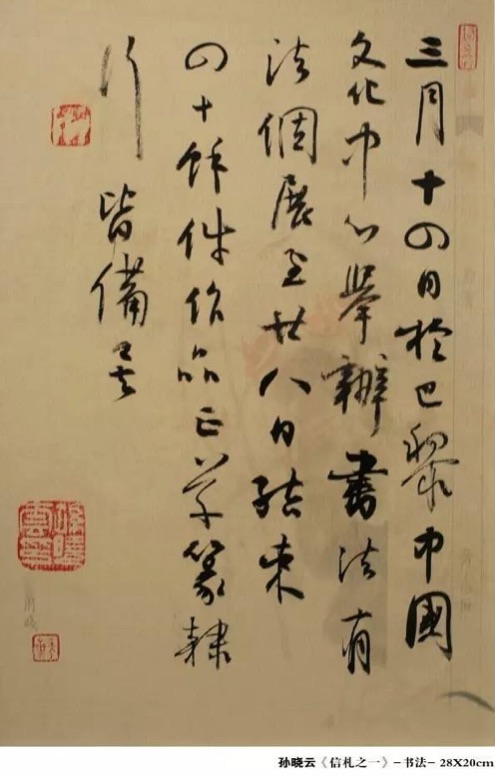 三月十四日於巴黎中國
文化中心舉辦書法有
法個展至廿八日結束
四十餘件作品正草篆隸
行皆備矣
孙晓云《信札之一》-书法- 28X20cm